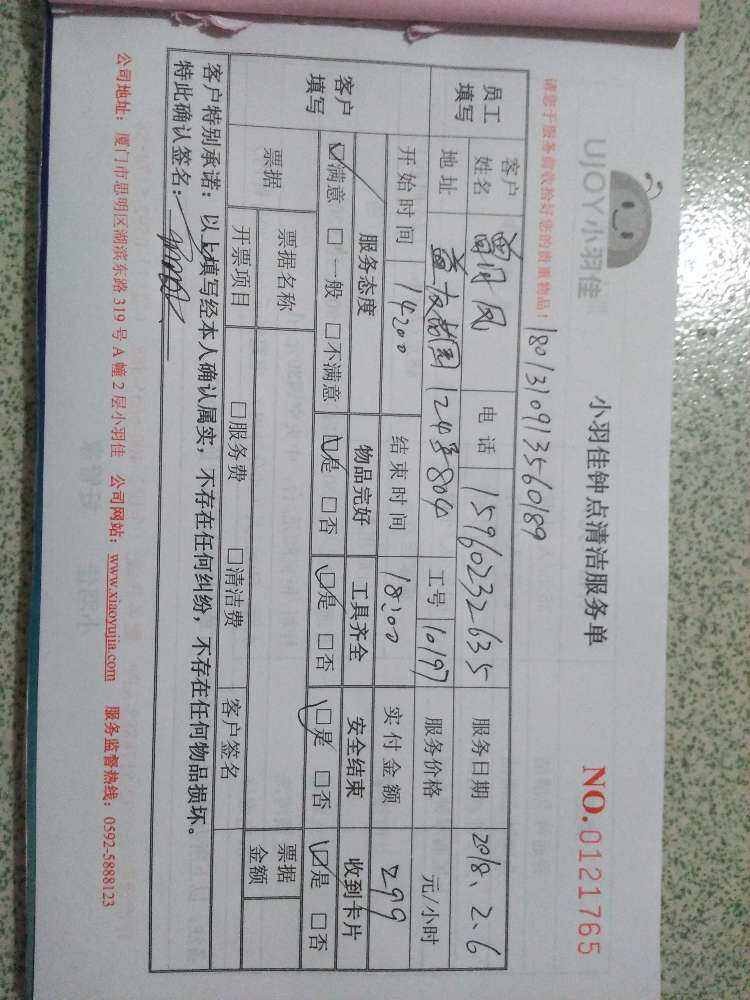 UJOY小羽佳
小羽佳钟点清洁服务单
NO.0121765
请您于服务前收拾好您的贵重物品！
1801310913560189
员工填写 客户姓名 曾丹凤 电话 15960232635 服务日期 2018.2.6
地址 益友蓝园124号804 工号 10197 服务价格 元/小时
开始时间 14:00 结束时间 18:00 实付金额 299
客户填写 服务态度 物品完好 工具齐全 安全结束 收到卡片
☑满意 □一般 □不满意 ☑是 □否 ☑是 □否 ☑是 □否 ☑是 □否
票据 票据名称 票据金额
开票项目 □服务费 □清洁费 客户签名
客户特别承诺：以上填写经本人确认属实，不存在任何纠纷，不存在任何物品损坏。
特此确认签名：
公司地址：厦门市思明区湖滨东路319号A幢2层小羽佳 公司网站：www.xiaoyujia.com 服务监督热线：0592-5888123